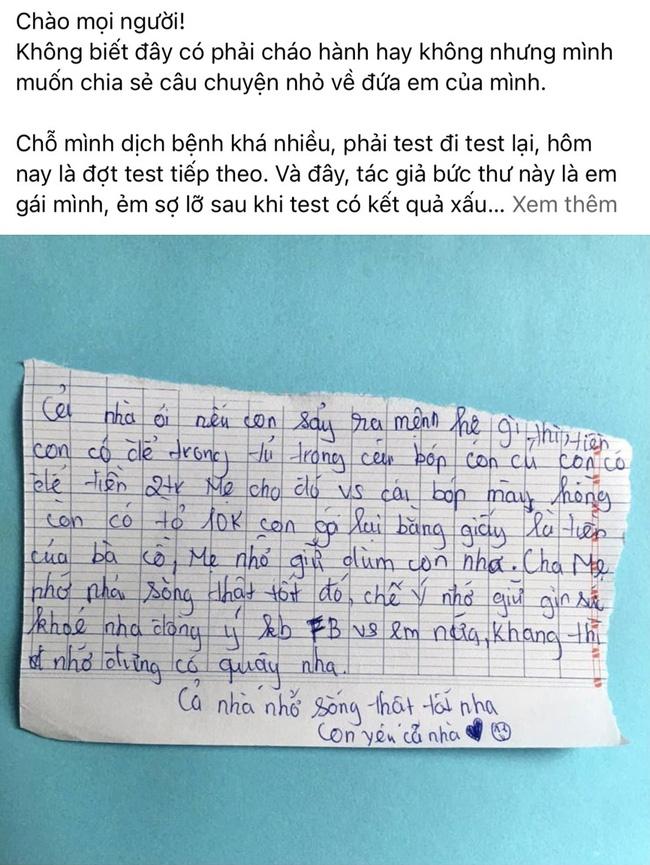 Chào mọi người!
Không biết đây có phải cháo hành hay không nhưng mình
muốn chia sẻ câu chuyện nhỏ về đứa em của mình.
Chỗ mình dịch bệnh khá nhiều, phải test đi test lại, hôm
nay là đợt test tiếp theo. Và đây, tác giả bức thư này là em
gái mình, ẻm sợ lỡ sau khi test có kết quả xấu... Xem thêm
Cả nhà ơi nếu con sảy ra mệnh hệ gì thì tiền
con có để trong tủ trong cái bóp con cú con có
để tiền 2tr Mẹ cho đó vs cái bóp màu hồng
con có tờ 10K con gó lại bằng giấy là tiền
của bà cố, Mẹ nhớ giữ dùm con nha. Cha Mẹ
nhớ phải sống thật tốt đó, chế Ý nhớ giữ gìn sức
khoẻ nha đồng ý kb FB vs em nữa, Khang thì
nhớ đừng có quậy nha.
Cả nhà nhớ sống thật tốt nha
Con yêu cả nhà